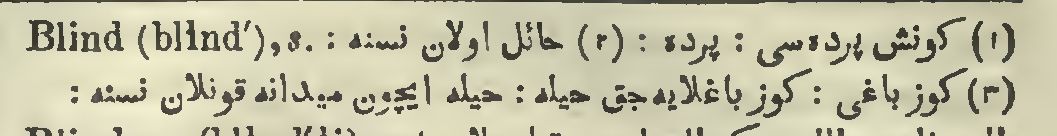 Blind (blīnd′), s. (۱) كونش پرده‌سی : پرده : (۲) حائل اولان نسنه :
(۳) كوز باغی : كوز باغلایه‌جق حیله : حیله ایچون میدانه قونلان نسنه :